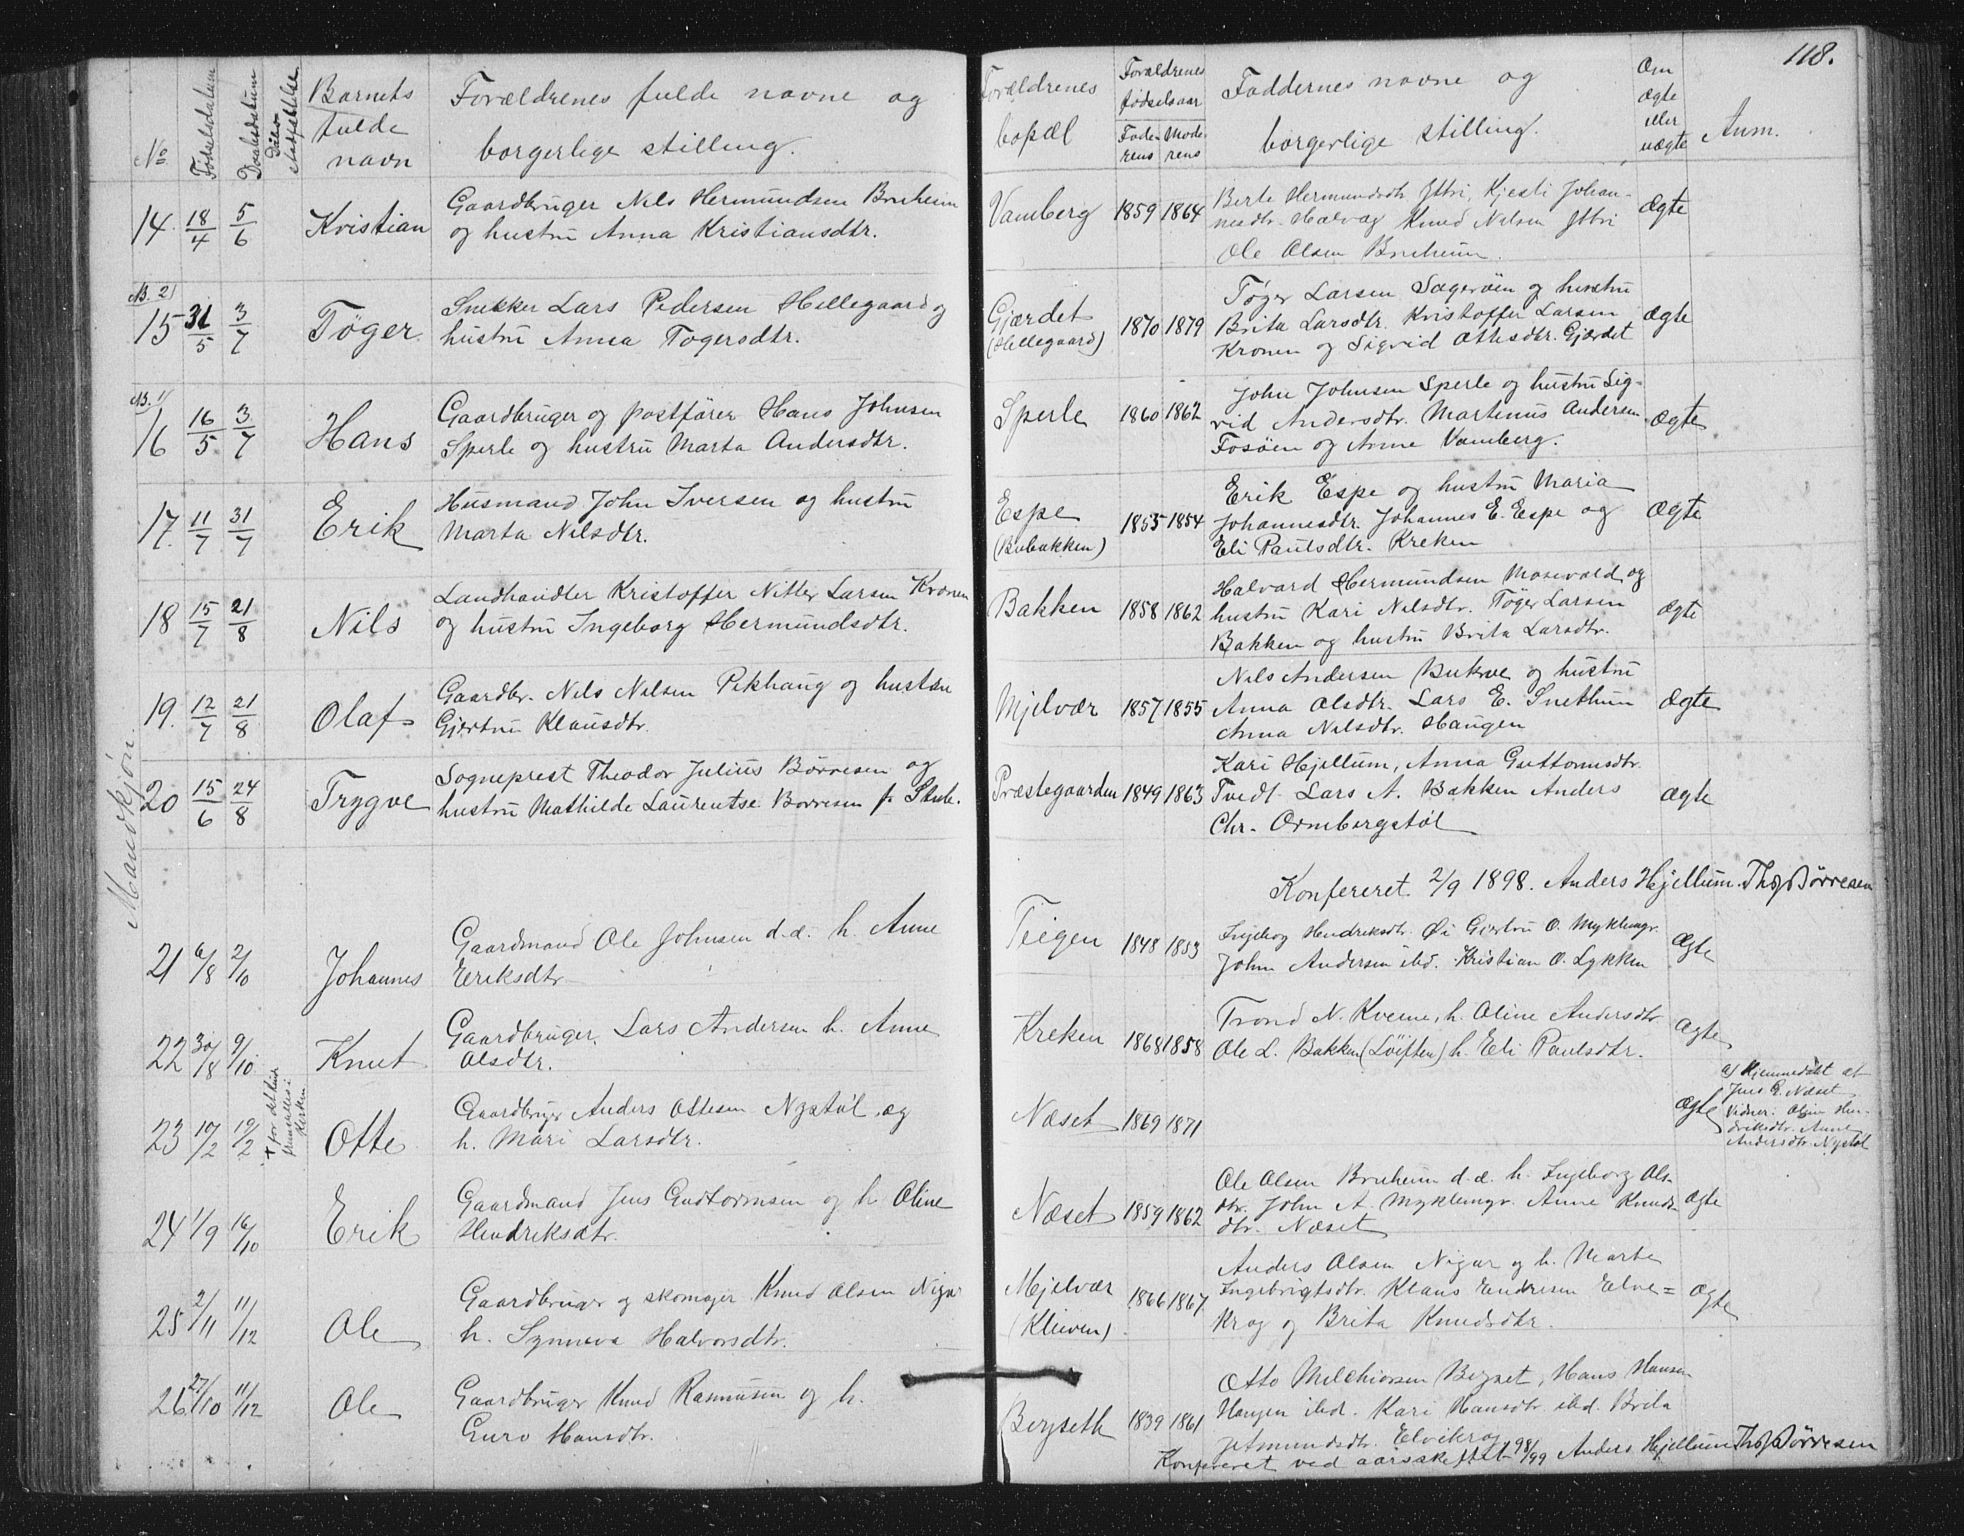 118.
No
Fødselsdatum
Daabsdatum
Barnets
fulde
navn
Forældrenes fulde navne og
borgerlige stilling.
Forældrenes
bopæl
Forældrenes
fødselsaar
Fade-
rens
Mode-
rens
Faddernes navne og
borgerlige stilling.
Om
ægte
eller
uægte
Anm.
Mandkjøn.
14. 18/4 5/6 Kristian
Gaardbruger Nils Hermundsen Bruheim
og hustru Anna Kristiansdtr.
Vamberg 1859 1864
Berte Hermundsdtr Ytri, Kjesti Johan-
nesdtr. Halvag Knud Nilsen Ytri
Ole Olsen Bruheim.
Ægte
N. 2)
15 31/5 3/7 Tøger
Snekker Lars Pedersen Hillegaard og
hustru Anna Tøgersdtr.
Gjærdet
(Hillegaard)
1870 1879
Tøger Larsen Sagerøen og hustru
Brita Larsdtr. Kristoffer Larsen
Kronen og Sigrid Ottesdtr. Gjærdet
Ægte
N. 1)
16 16/5 3/7 Hans
Gaardbruger og postfører Hans Johnsen
Sperle og hustru Marta Andersdtr.
Sperle 1860 1862
John Johnsen Sperle og hustru Sig-
rid Andersdtr. Martinus Andersen
Fosøen og Anne Vamberg.
Ægte
17. 11/7 31/7 Erik
Husmand John Iversen og hustru
Marta Nilsdtr.
Espe
(Bubakken)
1855 1854
Erik Espe og hustru Maria
Johannesdtr. Johannes E. Espe og
Eli Paulsdtr. Kreken
Ægte
18 15/7 21/8 Nils
Landhandler Kristoffer Nitter Larsen Kronen
og hustru Ingeborg Hermundsdtr.
Bakken 1858 1862
Halvard Hermundsen Mosevold og
hustru Kari Nilsdtr. Tøger Larsen
Bakken og hustru Brita Larsdtr.
Ægte
19. 12/7 21/8 Olaf
Gaardbr. Nils Nilsen Pikhaug og hustru
Gjertru Klausdtr.
Mjelvær 1857 1855
Nils Andersen Bukve og hustru
Anna Olsdtr. Lars E. Snethun
Anna Nilsdtr. Haugen
Ægte
20 15/6 24/8 Trygve
Sogneprest Theodor Julius Børresen og
hustru Mathilde Laurentse Børresen f.
Præstegaarden 1849 1863
Kari Hjellum, Anna Guttormsdtr.
Tvedt Lars A. Bakken Anders
Chr. Ormbergstøl
Ægte
Konfereret 2/9 1898. Anders Hjellum. Th J Børresen
21 6/8 2/10 Johannes
Gaardmand Ole Johnsen d.æ. h. Anne
Eriksdtr
Teigen 1848 1853
Ingeborg Hendriksdtr. Øi Gjertru O. Myklemyr.
John Andersen ibd. Kristian O. Lykken
Ægte
22 30/8 9/10 Knut
Gaardbruger. Lars Andersen h. Anne
Olsdtr.
Kreken 1868 1858
Trond N. Kveme, h. Oline Andersdtr
Ole L. Bakken (Løiften) h. Eli Paulsdtr.
Ægte
23 10/2 10/2 Otte
Gaardbruger Anders Ottesen Nystøl og
h. Mari Larsdtr.
Næset 1869 1871
Ægte
a) Hjemmedøbt af
Jens G. Næset
Vidner: Oline Hen-
driksdtr. Anne
Andersdtr. Nystøl
24 1/9 16/10 Erik
Gaardmand Jens Gudtormsen og h. Oline
Hendriksdtr.
Næset 1859 1862
Ole Olsen Bruheim d.æ. h. Ingeborg Ols-
dtr. John A. Myklemyr. Anne Knuds-
dtr. Næset
Ægte
25 2/11 11/12 Ole
Gaardbruger og skomager Knud Olsen Nigar
h. Synneva Halvorsdtr.
Mjelvær
(Kleiven)
1866 1867
Anders Olsen Nigar og h. Marte
Ingebrigtsdtr. Klaus Endresen Elve=
krog og Brita Knudsdtr.
Ægte
26 27/10 11/12 Ole
Gaardbruger Knud Rasmusen og h.
Guro Hansdtr.
Bergseth 1839 1861
Otto Melchiorsen Bergset, Hans Hansen
Haugen ibd. Kari Hansdtr. ibd. Brita
Elvikrog
Konfereret ved aarsskiftet 98/99 Anders Hjellum Th J Børresen